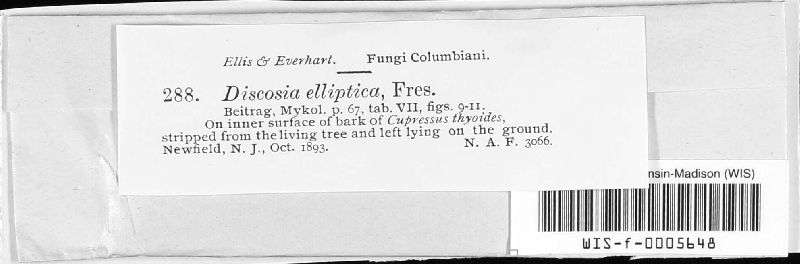 Ellis & Everhart. Fungi Columbiani.
288. Discosia elliptica, Fres.
Beitrag, Mykol. p. 67, tab. VII, figs. 9-11.
On inner surface of bark of Cupressus thyoides,
stripped from the living tree and left lying on the ground.
Newfield, N. J., Oct. 1893. N. A. F. 3066.
nsin-Madison (WIS)
WIS-f-0005648